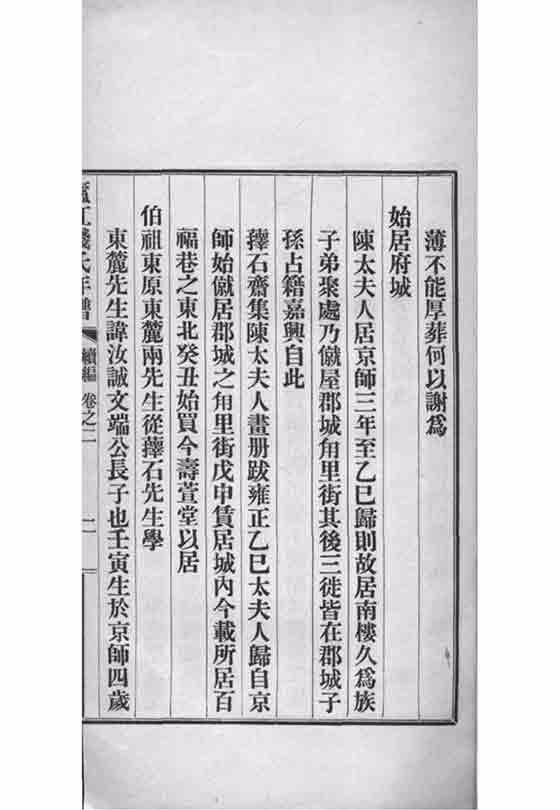 薄不能厚葬何以謝爲
始居府城
陳太夫人居京師三年至乙巳歸則故居南樓久爲族
子弟聚處乃僦屋郡城甪里街其後三徙皆在郡城子
孫占籍嘉興自此
蘀石齋集陳太夫人畫册跋雍正乙巳太夫人歸自京
師始僦居郡城之甪里街戊申賃居城內今載所居百
福巷之東北癸丑始買今壽萱堂以居
伯祖東原東麓兩先生從蘀石先生學
東麓先生諱汝誠文端公長子也壬寅生於京師四歲
江錢氏年譜 續編 卷之二 二